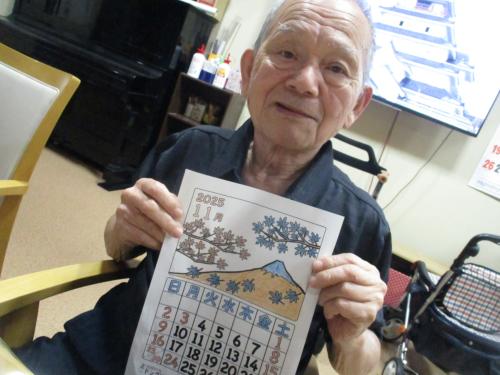 2025
11月
日 月 火 水 木 金 土
1
2 3 4 5 6 7 8
9 10 11 12 13 14 15
16 17 18 19 20 21
23/30 24 25 26 27 28
19
26